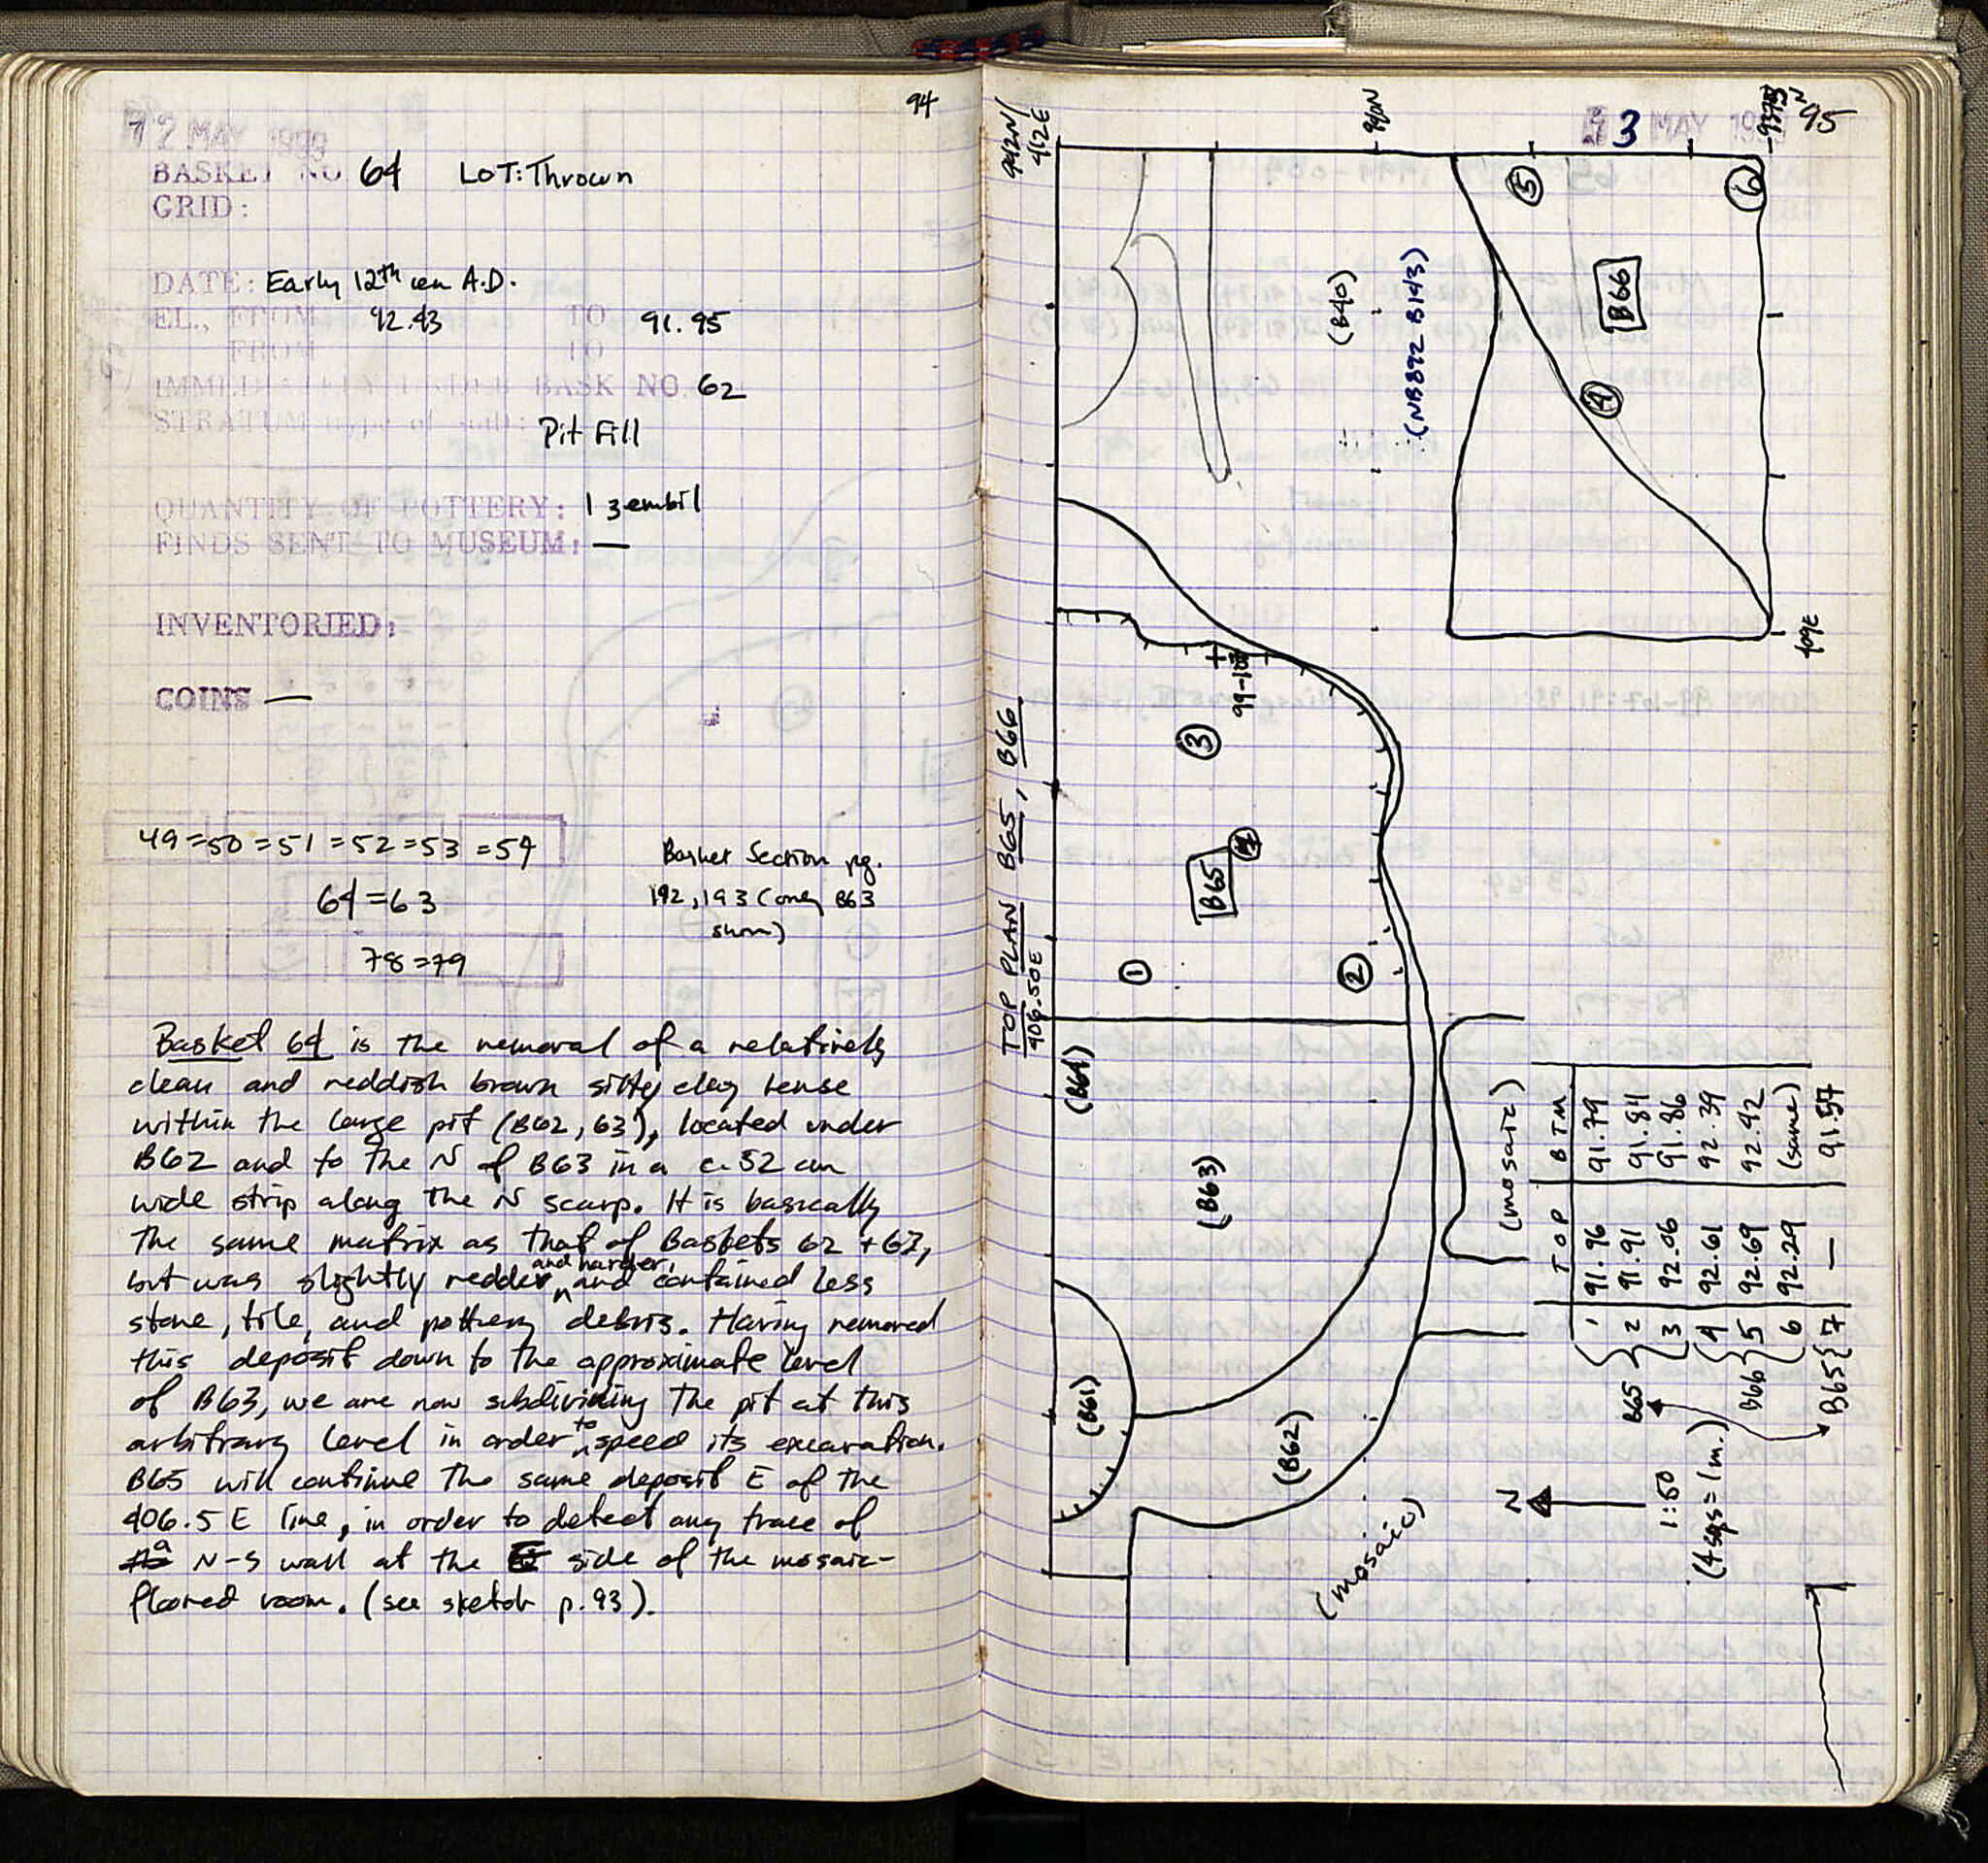 94
12 MAY 1999
BASKET NO. 64 LOT: Thrown
GRID:
DATE: Early 12th cen A.D.
EL., FROM 92.43 TO 91.95
FROM TO
IMMEDIATELY UNDER BASK NO. 62
STRATUM (type of soil): Pit Fill
QUANTITY OF POTTERY: 1 zembil
FINDS SENT TO MUSEUM: —
INVENTORIED:
COINS —
49=50=51=52=53=54
64=63
78=79
Basket Section pg.
192, 193 (only B63
shown)
Basket 64 is the removal of a relatively
clean and reddish brown silty clay lense
within the large pit (B62, 63), located under
B62 and to the N of B63 in a c. 52 cm
wide strip along the N scarp. It is basically
the same matrix as that of Baskets 62 + 63,
but was slightly redder and harder, and contained less
stone, tile, and pottery debris. Having removed
this deposit down to the approximate level
of B63, we are now subdividing the pit at this
arbitrary level in order to speed its excavation.
B65 will continue the same deposit E of the
406.5 E line, in order to detect any trace of
a N-S wall at the side of the mosaic-
floored room. (see sketch p. 93).
95
13 MAY 199
TOP PLAN B65, B66
406.50E
942N/
412E
940N
409E
(B40)
(NB892 B143)
B66
5
6
4
3
B65
7
1
2
(B64)
(B63)
(B61)
(B62)
(mosaic)
(mosaic)
N
1:50
(4sqs=1m.)
TOP BTM
B65 { 1 91.96 91.79
2 91.91 91.84
3 92.06 91.86
B66 { 4 92.61 92.39
5 92.69 92.42
6 92.29 (same)
B65 { 7 — 91.57